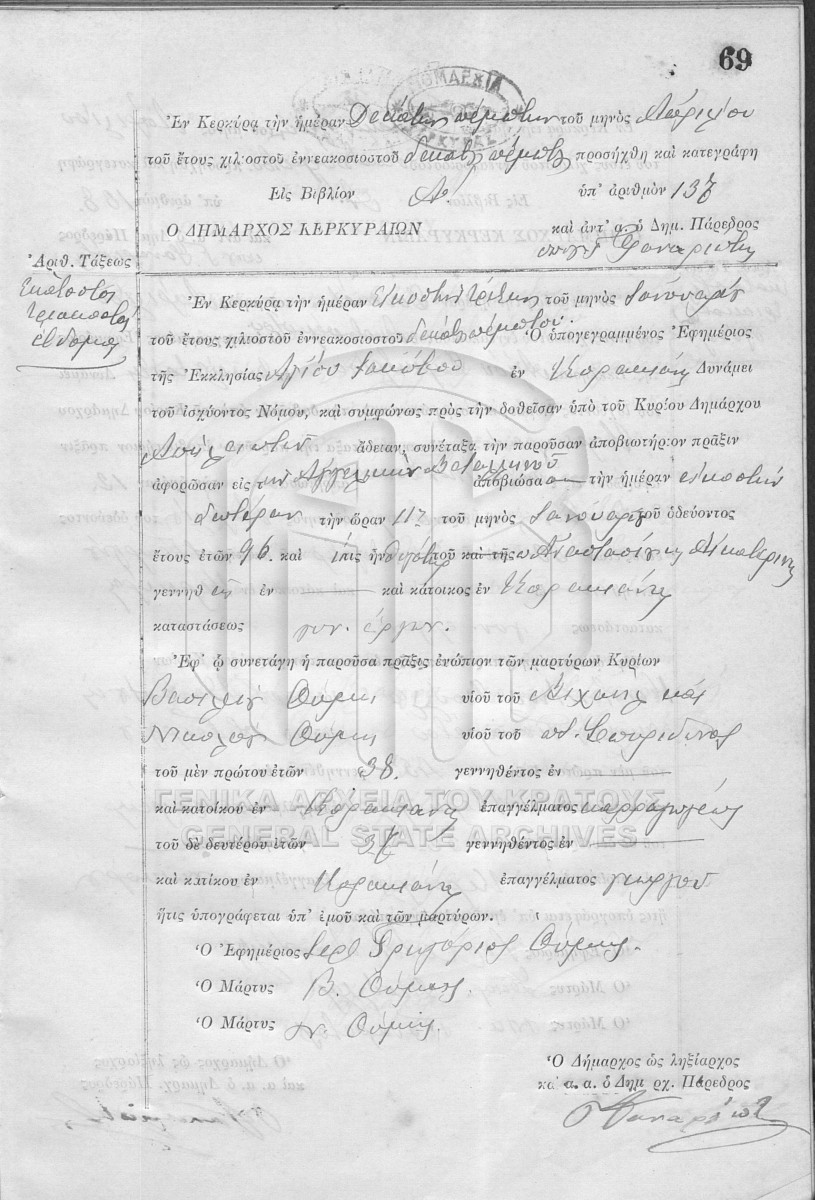 69
ΝΟΜΑΡΧΙΑ
Ἐν Κερκύρᾳ τὴν ἡμέραν Δεκάτην πέμπτην τοῦ μηνὸς Ἀπριλίου
τοῦ ἔτους χιλιοστοῦ ἐννεακοσιοστοῦ δεκάτου πέμπτου προσήχθη καὶ κατεγράφη
Εἰς Βιβλίον Α. ὑπ' ἀριθμὸν 137
Ο ΔΗΜΑΡΧΟΣ ΚΕΡΚΥΡΑΙΩΝ καὶ ἀντ' α. ὁ Δημ. Πάρεδρος
Φαναριώτης
Ἀριθ. Τάξεως
Ἑκατοστὸς
τριακοστὸς
ἕβδομος
Ἐν Κερκύρᾳ τὴν ἡμέραν εἰκοστὴν τρίτην τοῦ μηνὸς Ἰανουαρίου
τοῦ ἔτους χιλιοστοῦ ἐννεακοσιοστοῦ δεκάτου πέμπτου. Ὁ ὑπογεγραμμένος Ἐφημέριος
τῆς Ἐκκλησίας Ἁγίου Ἰακώβου ἐν Κορακιάνῃ Δυνάμει
τοῦ ἰσχύοντος Νόμου, καὶ συμφώνως πρὸς τὴν δοθεῖσαν ὑπὸ τοῦ Κυρίου Δημάρχου
ἄδειαν, συνέταξα τὴν παροῦσαν ἀποβιωτήριον πρᾶξιν
ἀφορῶσαν εἰς τὴν Ἀγγελικὴν ἀποβιώσασαν τὴν ἡμέραν εἰκοστὴν
δευτέραν τὴν ὥραν 11 τοῦ μηνὸς Ἰανουαρίου τοῦ ὁδεύοντος
ἔτους ἐτῶν 96. καὶ ἥτις ἦν θυγάτηρ τοῦ καὶ τῆς π Ἀναστασίου Αἰκατερίνης
γεννηθεῖσα ἐν καὶ κάτοικος ἐν Κορακιάνῃ
καταστάσεως
Ἐφ' ᾧ συνετάγη ἡ παροῦσα πρᾶξις ἐνώπιον τῶν μαρτύρων Κυρίων
Βασιλείου Θύμη υἱοῦ τοῦ Μιχαὴλ καὶ
Νικολάου Θύμη υἱοῦ τοῦ π. Σπυρίδωνος
τοῦ μὲν πρώτου ἐτῶν 38. γεννηθέντος ἐν
καὶ κατοίκου ἐν Κορακιάνῃ ἐπαγγέλματος καρραγωγέως
ΓΕΝΙΚΑ ΑΡΧΕΙΑ ΤΟΥ ΚΡΑΤΟΥΣ
GENERAL STATE ARCHIVES
τοῦ δὲ δευτέρου ἐτῶν 37 γεννηθέντος ἐν
καὶ κατίκου ἐν Κορακιάνῃ ἐπαγγέλματος γεωργοῦ
ἥτις ὑπογράφεται ὑπ' ἐμοῦ καὶ τῶν μαρτύρων.
Ὁ Ἐφημέριος Ἱερ. Γρηγόριος Θύμης.
Ὁ Μάρτυς Β. Θύμης.
Ὁ Μάρτυς Ν. Θύμης.
Ὁ Δήμαρχος ὡς ληξίαρχος
κα' α. α. ὁ Δημ ρχ. Πάρεδρος
Φαναριώτης